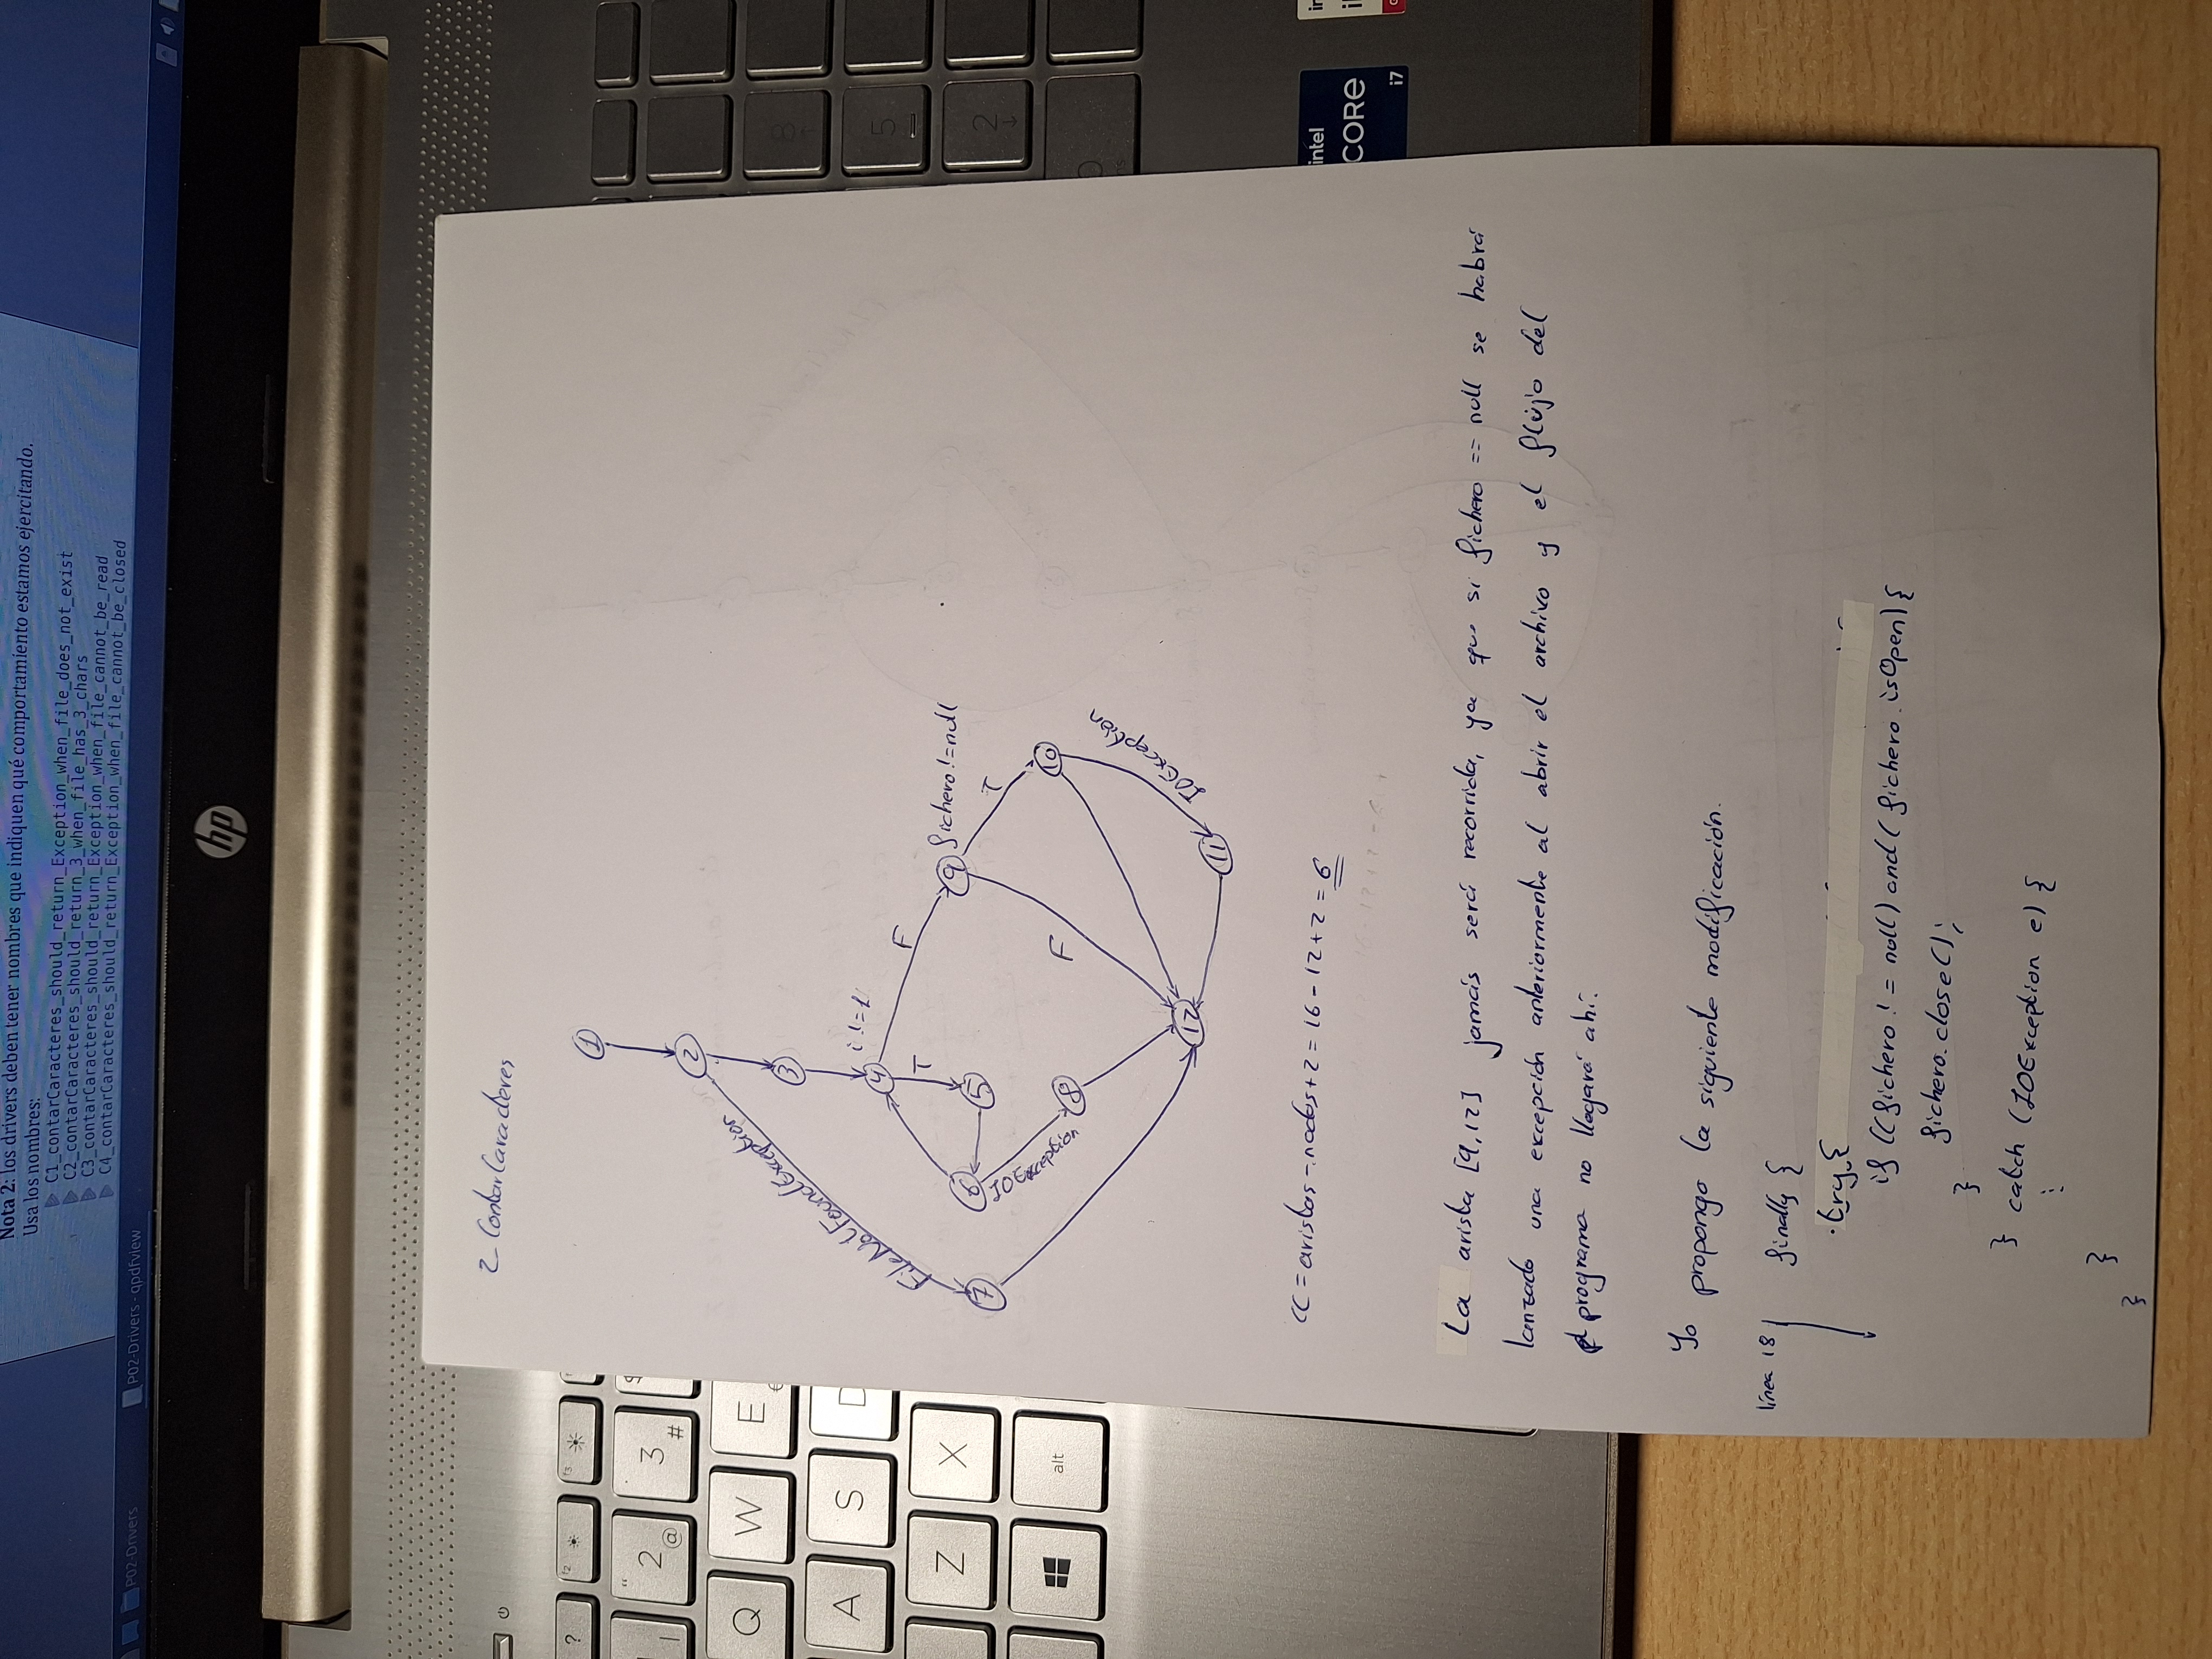 Nota 2: los drivers deben tener nombres que indiquen qué comportamiento estamos ejercitando.
Usa los nombres:
C1_contarCaracteres_should_return_Exception_when_file_does_not_exist
C2_contarCaracteres_should_return_3_when_file_has_3_chars
C3_contarCaracteres_should_return_Exception_when_file_cannot_be_read
C4_contarCaracteres_should_return_Exception_when_file_cannot_be_closed
P02-Drivers
P02-Drivers - qpdfview
hp
2 ContarCaracteres
1
2
FileNotFoundException
3
4
i!=1
T
F
9
fichero!=null
7
6
5
T
IOException
8
F
10
IOException
12
11
CC = aristas - nodos + 2 = 16 - 12 + 2 = 6
La arista [9,12] jamás será recorrida, ya que si fichero == null se habrá
lanzado una excepción anteriormente al abrir el archivo y el flujo del
programa no llegará ahí.
Yo propongo la siguiente modificación.
línea 18
finally {
try {
if ((fichero != null) and (fichero.isOpen) {
fichero.close();
}
} catch (IOException e) {
⋮
}
}
?
f2
f3
2
@
3
#
Q
W
E
A
S
D
Z
X
alt
8
5
2
intel
CORE
i7